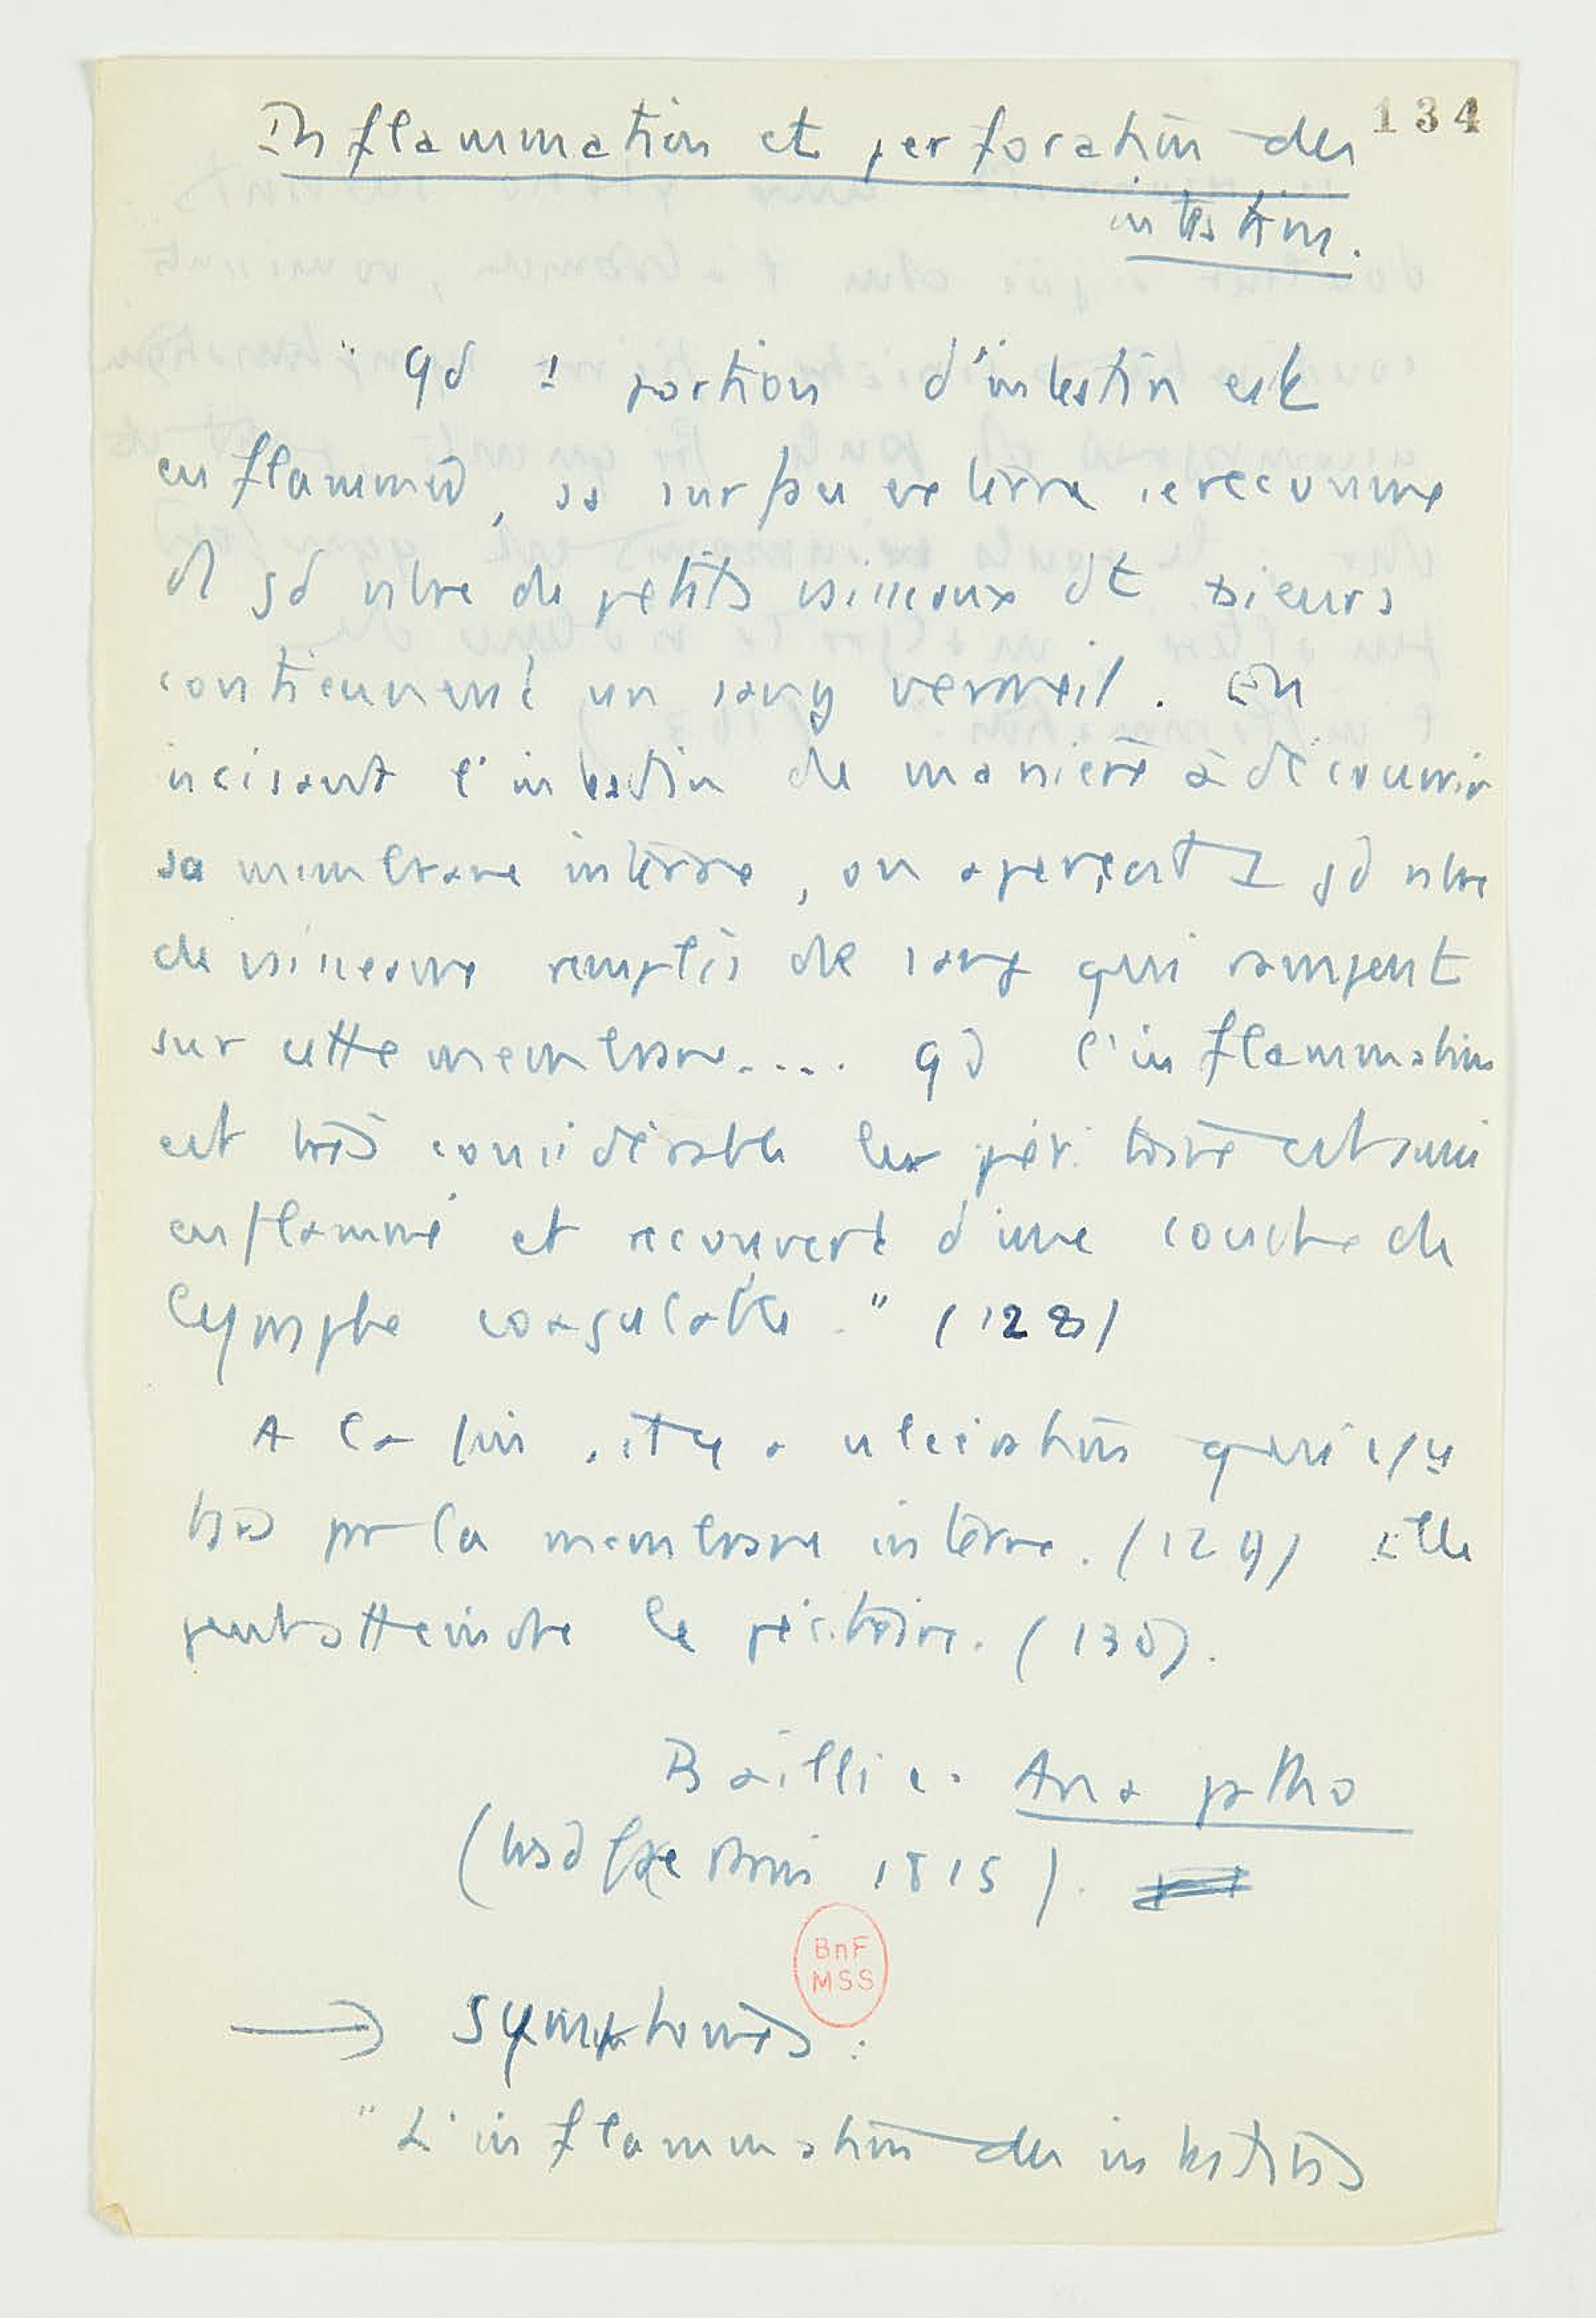 134
Inflammation et perforation des
intestins.
" qd 1 portion d'intestin est
enflammée, sa surface externe se recouvre
d'1 gd nbre de petits vaisseaux dt
contiennent un sang vermeil. En
incisant l'intestin de manière à découvrir
sa membrane interne, on aperçoit 1 gd nbre
de vaisseaux remplis de sang qui rampent
sur cette membrane.... qd l'inflammation
est très considérable le péritoine est aussi
enflammé et recouvert d'une couche de
lymphe coagulable." (128)
A la fin, il y a ulcération qui
par la membrane interne. (129) Elle
peut atteindre le péritoine. (130).
Baillie. Ana patho
(trad fse 1815).
BnF
MSS
→ Symptomes :
" L'inflammation des intestins